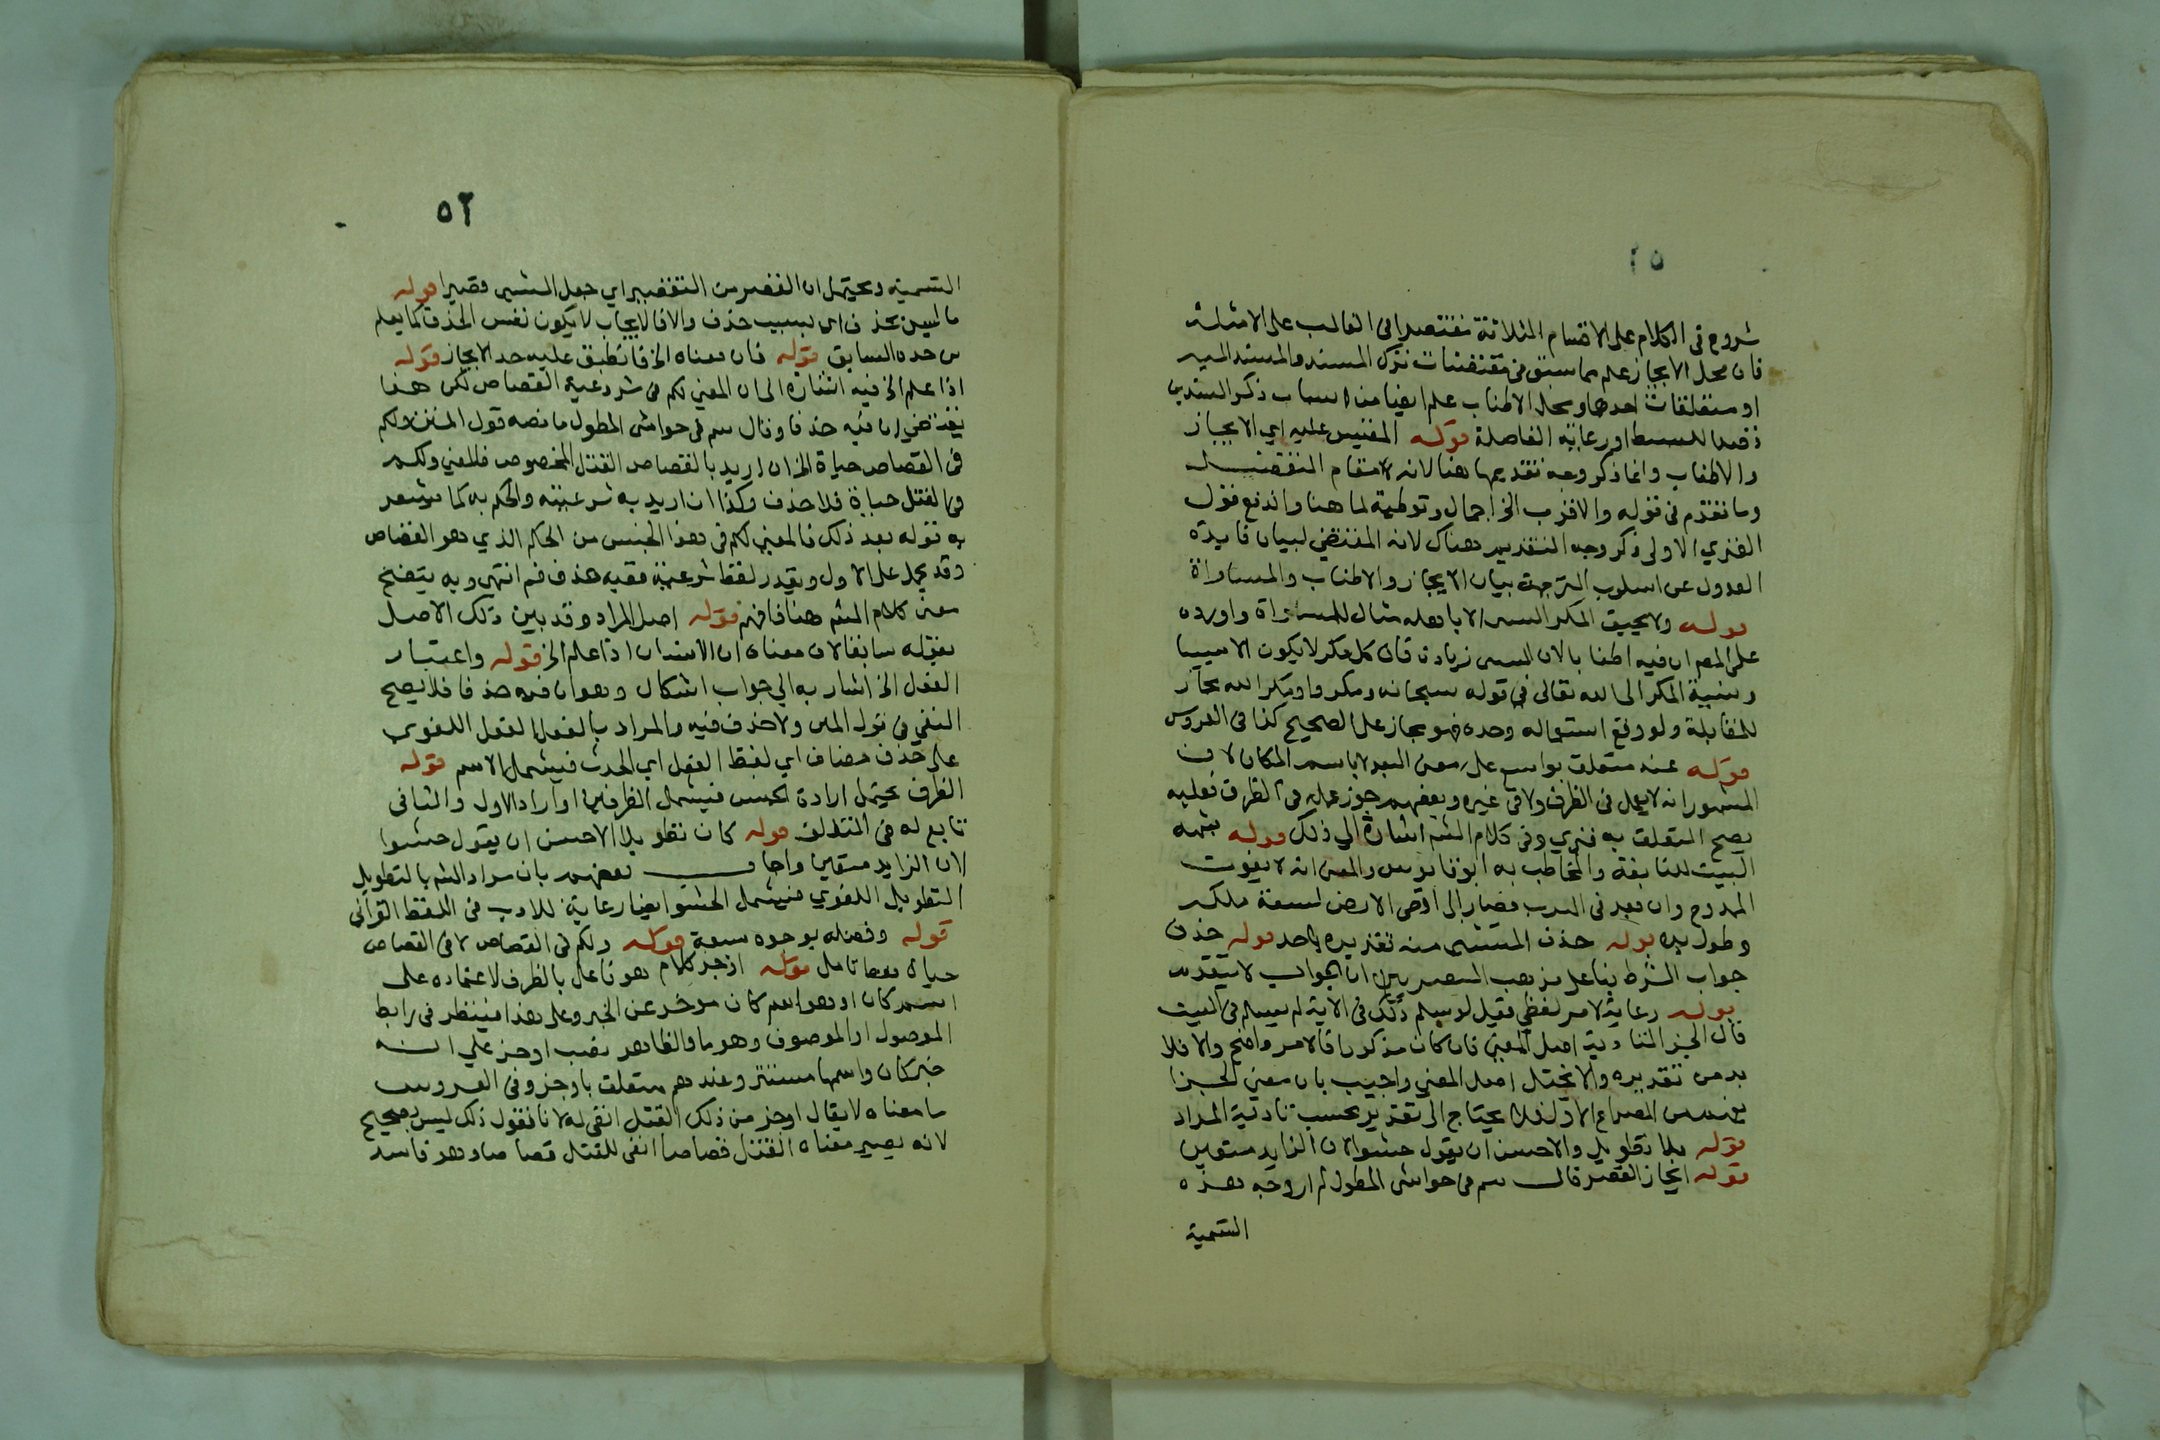 شروع فى الكلام على الاقسام الثلاثة مقتصرا فى الغالب على الامثلة
فان محل الايجاز علم مما سبق فى مقتضيات ترك المسند والمسند اليه
او متعلقات احدهما ومحل الاطناب علم ايضا من اسباب ذكر المسندين
قصدا للبسط او رعاية الفاصلة قوله المقيس عليه اي الايجاز
والاطناب وانما ذكر وجه تقديمها هنا لانه مقام التفصيل
وما تقدم فى قوله والاقرب الخ اجمال وتوطئة لما هنا واندفع قول
الفنري الاولى ذكر وجه التقديم هناك لانه المقتضي لبيان فايدة
العدول عن اسلوب الترجمة بيان الايجاز والاطناب والمساواة
قوله ولا يحيق المكر السيئ الا باهله مثال للمساواة واورده
على المص ان فيه اطنابا لان السيئ زيادة فان كل مكر لا يكون الا سيئا
ونسبة المكر الى الله تعالى فى قوله سبحانه ومكروا ومكر الله مجاز
للمقابلة ولو وقع استعماله وحده فهو مجاز على الصحيح كذا فى العروس
قوله عنه متعلق بواسع على معنى البعد لا باسم المكان لان
المشهور انه لا يعمل فى الظرف ولا فى غيره وبعضهم جوز عمله فى الظرف فعليه
يصح التعلق به فنري وفى كلام الشم اشارة الي ذلك قوله شبه
البيت للنابغة والمخاطب به ابو قابوس والمعنى انه لا يفوت
الممدوح وان بعد فى الهرب فصار الى اقصى الارض لسعة ملكه
وطول يده قوله حذف المستثنى منه تقديره باحد قوله حذف
جواب الشرط بنا على مذهب البصريين ان الجواب لا يتقدم
قوله رعاية لامر لفظي فقيل لو سلم ذلك فى الاية لم يسلم فى البيت
فان الجزا لتادية اصل المعنى فان كان مذكورا فالامر واضح والا فلا
بد من تقديره والا يختل اصل المعني واجيب بان معني الجزا
يفهم من المصراع الاول فلا يحتاج الى تقدير بحسب تادية المراد
قوله بلا تطويل والاحسن ان يقول حشوا لان الزايد متعين
قوله ايجاز القصر قال سم فى حواشى المطول لم ار وجه هذه
التسمية
٥٢
التسمية ويحتمل ان القصر من التقصير اي جعل الشيئ قصيرا قوله
ما ليس بحذف اى بسبب حذف والا فالايجاب لا يكون نفس الحذف كما يعلم
من حده السابق قوله فان معناه الخ فانطبق عليه حد الايجاز قوله
اذا علم الخ فيه اشارة الى ان المعني لكم فى شروعية القصاص لكن هذا
يقتضي ان فيه حذفا وقال سم فى حواشى المطول ما نصه قول المتن ولكم
فى القصاص حياة الخ ان اريد بالقصاص القتل المخصوص فالمعني ولكم
فى القتل حياة فلا حذف وكذا ان اريد به شرعيته والحكم به كما يشعر
به قوله بعد ذلك فالمعني لكم فى هذا الجنس من الحكم الذي هو القصاص
وقد يحمل على الاول ويقدر لفظ شرعية ففيه حذف فم انتهى وبه يتضح
معنى كلام الشم هنا فافهم قوله اصل المراد وقد بين ذلك الاصل
بقوله سابقا لان معناه ان الانسان اذا علم الخ قوله واعتبار
الفعل الخ اشار به الي جواب اشكال وهو ان فيه حذفا فلا يصح
النفي فى قول المتن ولا حذف فيه والمراد بالفعل الفعل اللغوي
على حذف مضاف اي لفظ الفعل اي الحدث فيشمل الاسم قوله
الظرف يحتمل ارادة الجنس فيشمل الظرفين او اراد الاول والثانى
تابع له فى التعلق قوله كان تطويلا الاحسن ان يقول حشوا
لان الزايد متعين واجاب بعضهم بان مراد الشم بالتطويل
التطويل اللغوي فيشمل الحشو ايضا رعاية للادب فى اللفظ القرآنى
قوله وفضله بوجوه سبعة قوله ولكم فى القصاص لا فى القصاص
حياة معا تامل قوله اوجز كلام هو فاعل بالظرف لاعتماده على
اسم كان او هو اسم كان موخر عن الخبر وعلى هذا فينظر فى رابط
الموصول او الموصوف وهو ما والظاهر نصب اوجز علي انه
خبر كان واسمها مستتر وعندهم متعلق باوجز وفى العروس
ما معناه لا يقال اوجز من ذلك القتل انفى له لانا نقول ذلك ليس بصحيح
لانه يصير معناه القتل قصاصا انفى للقتل قصاصا وهو فاسد